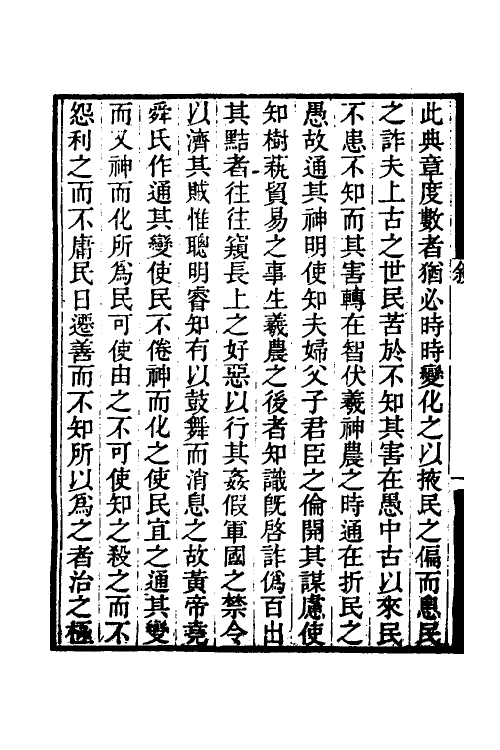 此典章度數者猶必時時變化之以掖民之偏而息民
之詐夫上古之世民苦於不知其害在愚中古以來民
不患不知而其害轉在智伏羲神農之時通在折民之
愚故通其神明使知夫婦父子君臣之倫開其謀慮使
知樹蓺貿易之事生羲農之後者知識既啓詐僞百出
其黠者往往窺長上之好惡以行其姦假軍國之禁令
以濟其賊惟聰明睿知有以鼓舞而消息之故黃帝堯
舜氏作通其變使民不倦神而化之使民宜之通其變
而又神而化所爲民可使由之不可使知之殺之而不
怨利之而不庸民日遷善而不知所以爲之者治之極